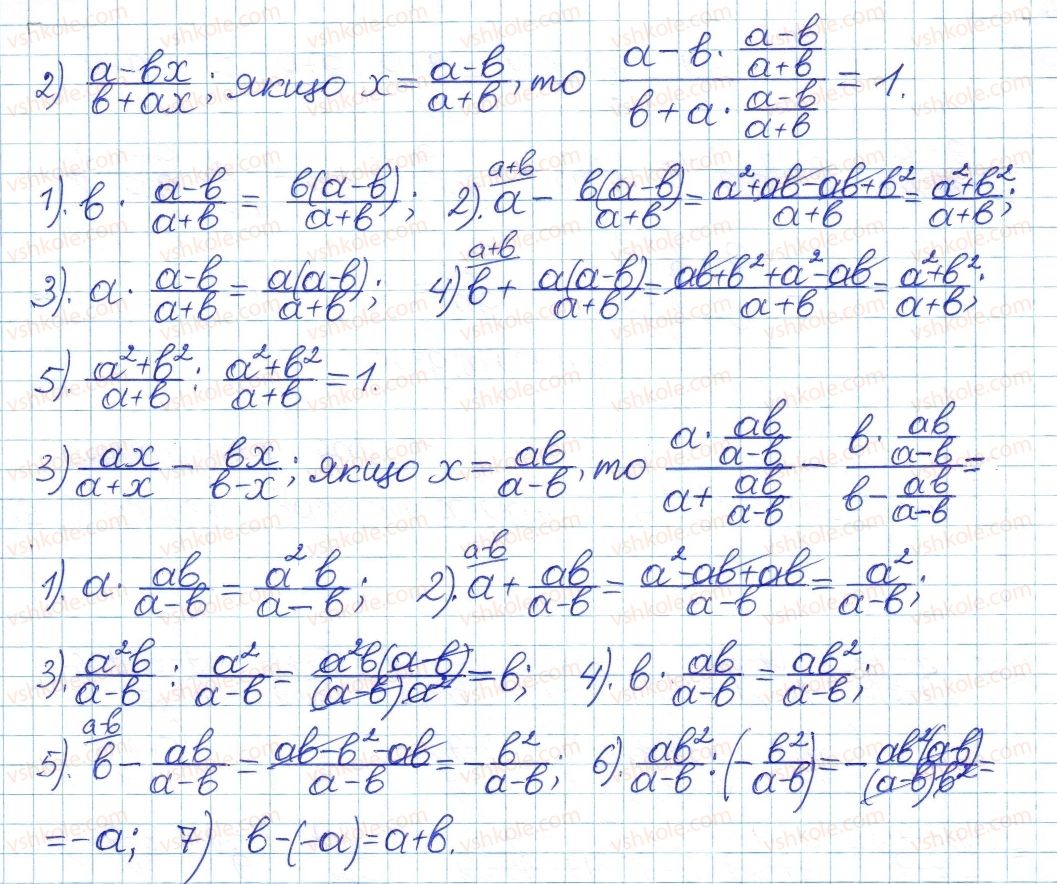 2) (a-bx)/(b+ax); якщо x = (a-b)/(a+b), то (a - b · (a-b)/(a+b))/(b + a · (a-b)/(a+b)) = 1.
1). b · (a-b)/(a+b) = b(a-b)/(a+b); 2). a^(a+b) - b(a-b)/(a+b) = (a²+ab-ab+b²)/(a+b) = (a²+b²)/(a+b);
3). a · (a-b)/(a+b) = a(a-b)/(a+b); 4) b^(a+b) + a(a-b)/(a+b) = (ab+b²+a²-ab)/(a+b) = (a²+b²)/(a+b);
5). (a²+b²)/(a+b) : (a²+b²)/(a+b) = 1.
3) ax/(a+x) - bx/(b-x); якщо x = ab/(a-b), то (a · ab/(a-b))/(a + ab/(a-b)) - (b · ab/(a-b))/(b - ab/(a-b)) =
1). a · ab/(a-b) = a²b/(a-b); 2). a^(a-b) + ab/(a-b) = (a²-ab+ab)/(a-b) = a²/(a-b);
3). a²b/(a-b) : a²/(a-b) = a²b(a-b)/((a-b)a²) = b; 4). b · ab/(a-b) = ab²/(a-b);
5). b^(a-b) - ab/(a-b) = (ab-b²-ab)/(a-b) = -b²/(a-b); 6). ab²/(a-b) : (-b²/(a-b)) = -ab²(a-b)/((a-b)b²) =
= -a; 7) b-(-a) = a+b.
vshkole.com